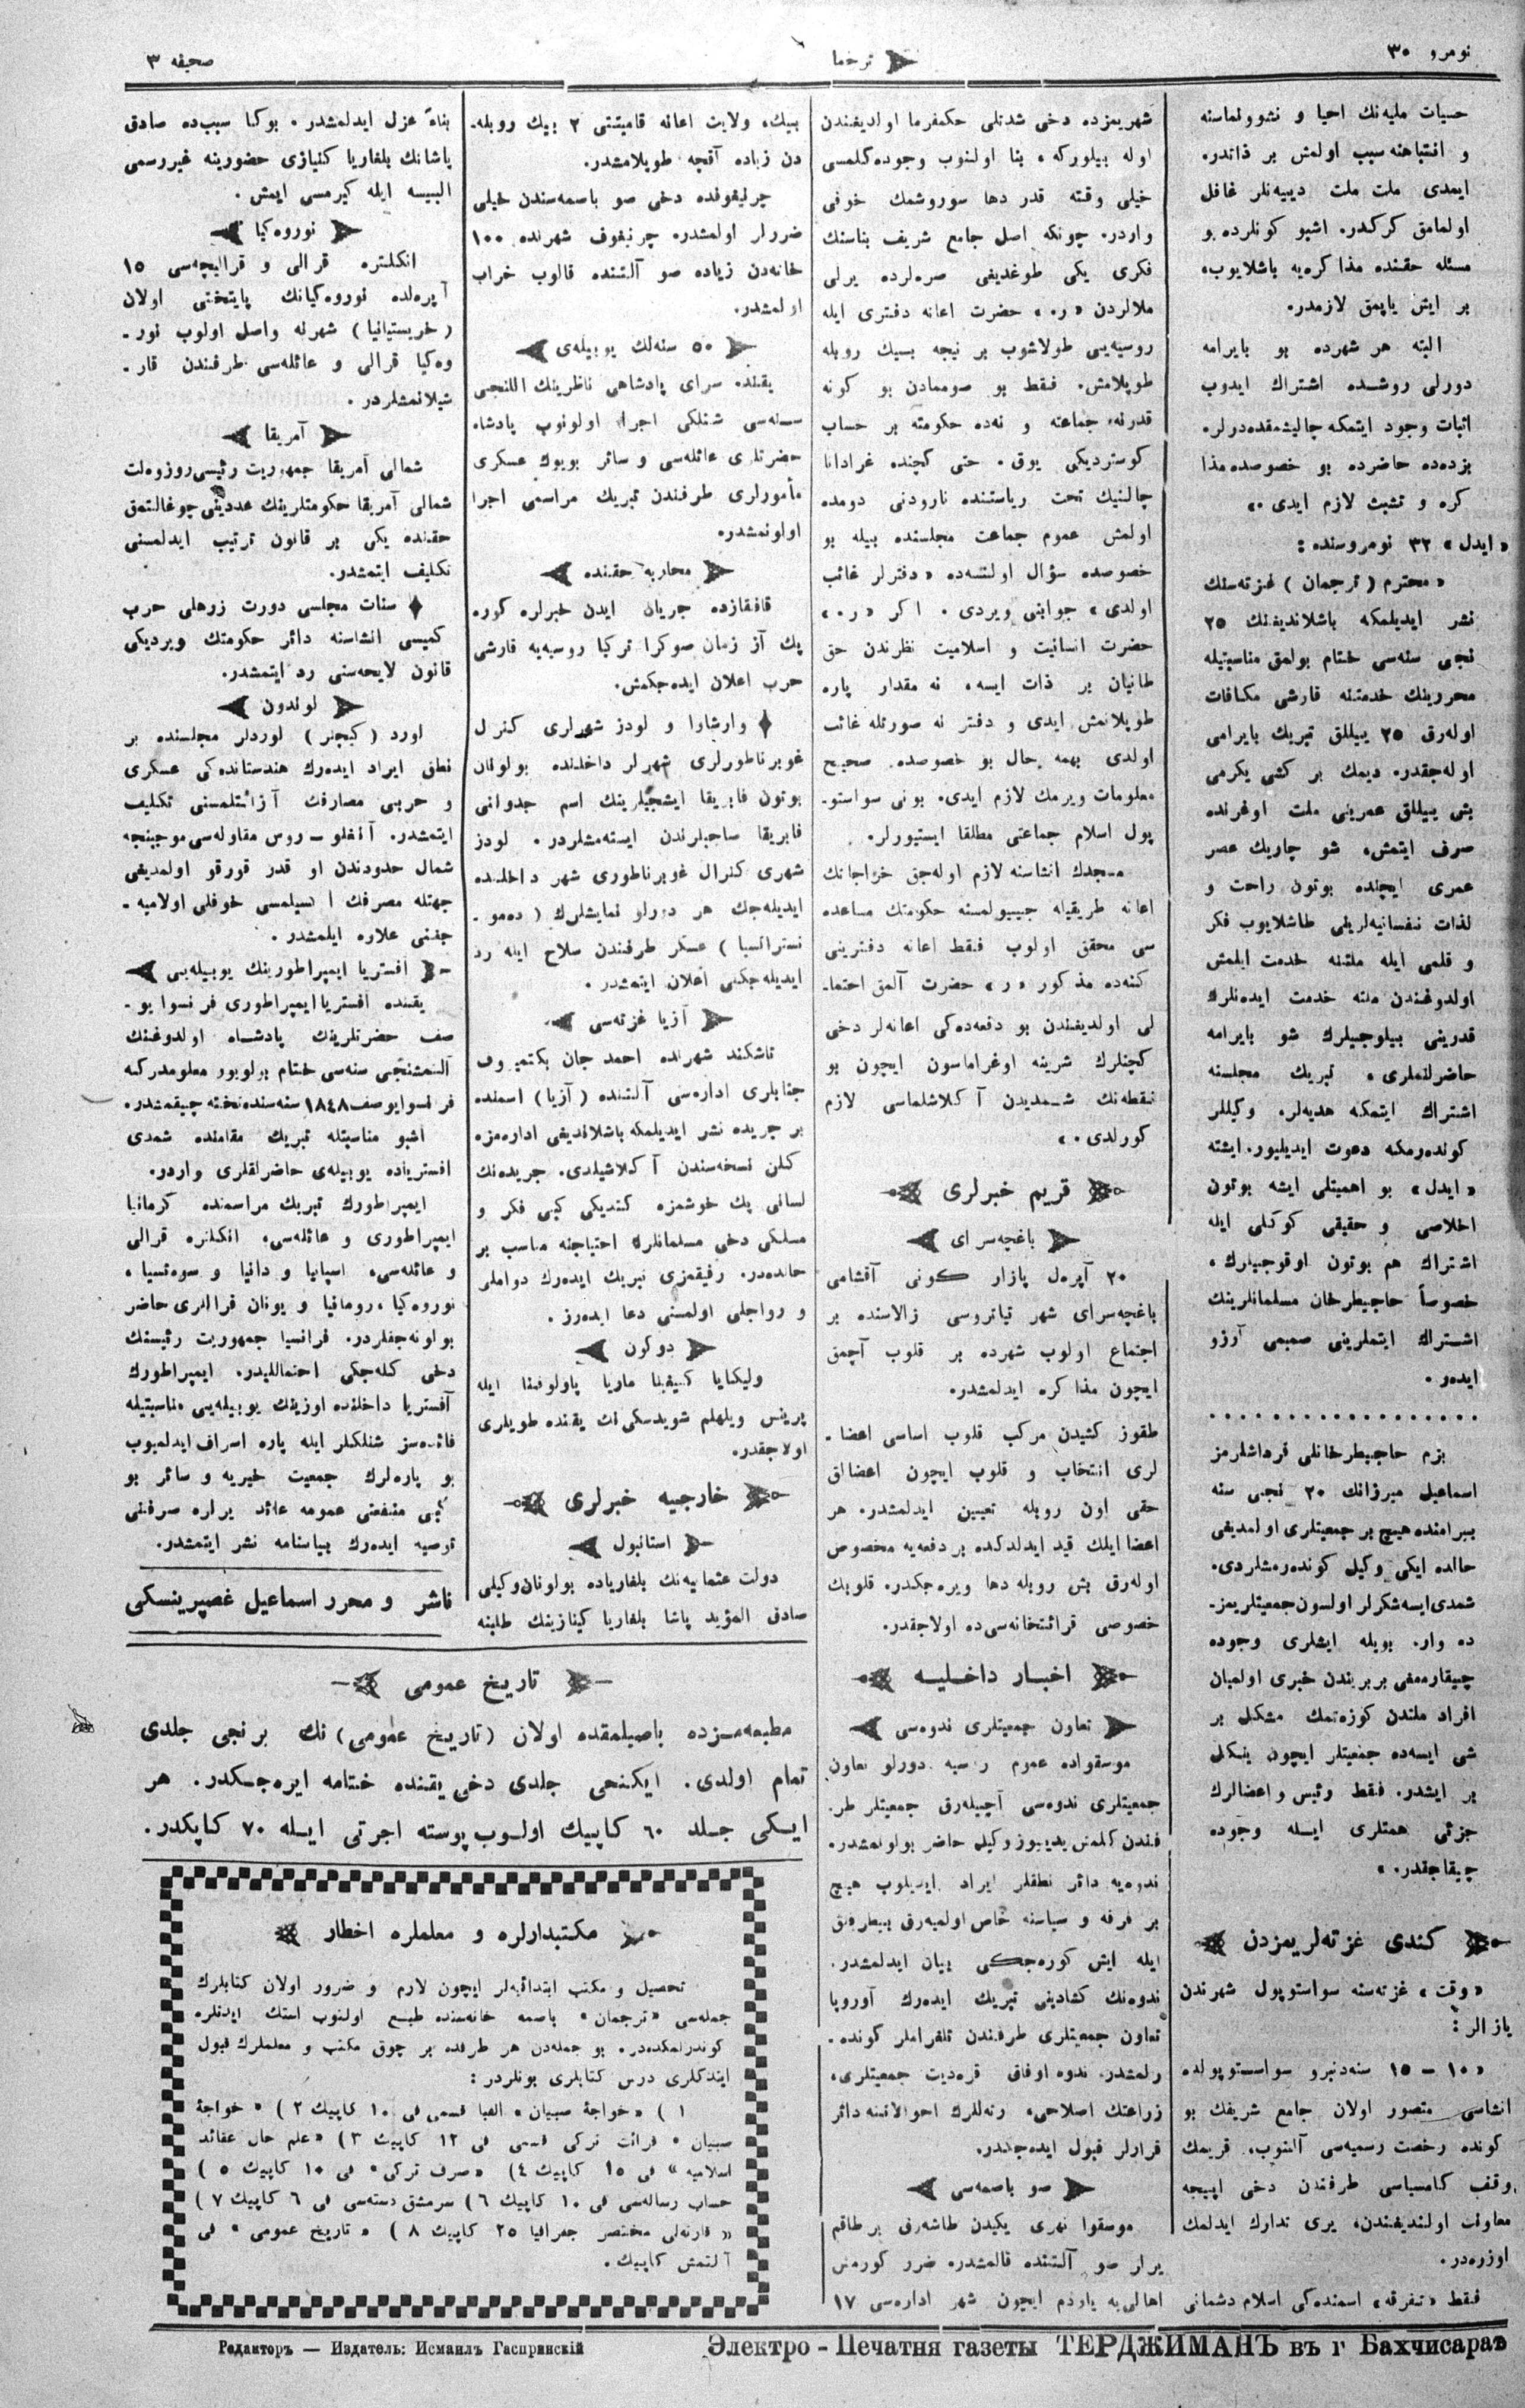 نومرو ۳۰
ترجما
صحیفه ۳
حسیات ملیه‌نك احیا و نشوونماسنه
و انتباهنه سبب اولمش بر ذاتدر.
ایمدی ملت ملت دیییه‌نلر غافل
اولمامق كركدر. اشبو كونلرده بو
مسئله حقنده مذاكره‌یه باشلایوب،
بر ایش یاپمق لازمدر.
البته هر شهرده بو بایرامه
دورلی روشده اشتراك ایدوب
اثبات وجود ایتمكه چالیشمقده‌درلر.
بزده‌ده حاضرده بو خصوصده مذا
كره و تشبث لازم ایدی .»
« ایدل » ۳۲ نومروسنده :
« محترم ( ترجمان ) غزته‌سنك
نشر ایدیلمكه باشلاندیغنك ۲۵
نجی سنه‌سی ختام بولمق مناسبتیله
محررینك خدمتنه قارشی مكافات
اوله‌رق ۲۵ ییللق تبریك بایرامی
اوله‌جقدر. دیمك بر كشی یكرمی
بش ییللق عمرینی ملت اوغرنده
صرف ایتمش، شو چاریك عصر
عمری ایچنده بوتون راحت و
لذات نفسانیه‌لرینی طاشلایوب فكر
و قلمی ایله ملتنه خدمت ایلمش
اولدوغندن ملته خدمت ایده‌نلرك
قدرینی بیلوجیلرك شو بایرامه
حاضرلنملری، تبریك مجلسنه
اشتراك ایتمكه هدیه‌لر، وكیللر
كونده‌رمكه دعوت ایدیلیور. ایشته
« ایدل » بو اهمیتلی ایشه بوتون
اخلاصی و حقیقی كوكلی ایله
اشتراك هم بوتون اوقوجیلرك ،
خصوصاً حاجیطرخان مسلمانلرینك
اشتراك ایتملرینی صمیمی آرزو
ایده‌ر .
. . . . . . . . . . . . . . . . .
بزم حاجیطرخانلی قرداشلرمز
اسماعیل میرزانك ۲۰ نجی سنه
بیرامنده هیچ بر جمعیتلری اولمدیغی
حالده ایكی وكیل كونده‌رمشلردی.
شمدی ایسه شكرلر اولسون جمعیتلریمز-
ده وار. بویله ایشلری وجوده
چیقارمه‌غی بربریندن خبری اولمیان
افراد ملتدن كوزه‌تمك مشكل بر
شی ایسه‌ده جمعیتلر ایچون یینكل
بر ایشدر. فقط رئیس و اعضالرك
جزئی همتلری ایسله وجوده
چیقاجقدر. »
كندی غزته‌لریمزدن
« وقت » غزته‌سنه سواستوپول شهرندن
یازالر :
« ۱۰ – ۱۵ سنه‌دنبرو سواستوپولده
انشاسی متصور اولان جامع شریفك بو
كونده رخصت رسمیه‌سی آلنوب، قریمك
وقف كامسیاسی طرفندن دخی ایییجه
معاونت اولندیغندن، یری تدارك ایدلمك
اوزره‌در.
فقط « تفرقه » اسمنده‌كی اسلام دشمانی
شهریمزده دخی شدتلی حكمفرما اولدیغندن
اوله بیلوركه، بنا اولنوب وجوده كلمسی
خیلی وقته قدر دها سوروشمك خوفی
واردر. چونكه اصل جامع شریف بناسنك
فكری یكی طوغدیغی صره‌لرده یرلی
ملالردن « ر. » حضرت اعانه دفتری ایله
روسیه‌یی طولاشوب بر نیجه بیك روبله
طوپلامش. فقط بو صوممادن بو كونه
قدر نه، جماعته و نه‌ده حكومته بر حساب
كوستردیكی یوق. حتی كچنده غرادانا
چالنیك تحت ریاستنده نارودنی دومده
اولمش عموم جماعت مجلسنده بیله بو
خصوصده سؤال اولنسه‌ده « دفترلر غائب
اولدی » جوابنی ویردی. اكر « ر. »
حضرت انسانیت و اسلامیت نظرندن حق
طانیان بر ذات ایسه، نه مقدار پاره
طوپلانمش ایدی و دفتر نه صورتله غائب
اولدی بهمه حال بو خصوصده صحیح
معلومات ویرمك لازم ایدی. بونی سواستو-
پول اسلام جماعتی مطلقا ایستیورلر.
مسجدك انشاسنه لازم اوله‌جق خراجاتك
اعانه طریقیله جیییولمسنه حكومتك مساعده
سی محقق اولوب فقط اعانه دفترینی
كنه‌ده مذكور « ر » حضرت آلمق احتما-
لی اولدیغندن بو دفعه‌ده‌كی اعانه‌لر دخی
كچنلرك شرینه اوغراماسون ایچون بو
نقطه‌نك شمدیدن آكلاشلماسی لازم
كورلدی. »
قریم خبرلری
باغچه‌سرای
۲۰ آپره‌ل پازار كونی آقشامی
باغچه‌سرای شهر تیاتروسی زالاسنده بر
اجتماع اولوب شهرده بر قلوب آچمق
ایچون مذاكره ایدلمشدر.
طقوز كشیدن مركب قلوب اساسی اعضا-
لری انتخاب و قلوب ایچون اعضالق
حقی اون روبله تعیین ایدلمشدر. هر
اعضا ایلك قید ایدلدكده بر دفعه‌یه مخصوص
اوله‌رق بش روبله دها ویره‌جكدر. قلوبك
خصوصی قرائتخانه‌سی‌ده اولاجقدر.
اخبار داخلیه
تعاون جمعیتلری ندوه‌سی
موسقواده عموم رسیه دورلو تعاون
جمعیتلری ندوه‌سی آچیله‌رق جمعیتلر طر-
فندن كلمش یدییوز وكیل حاضر بولونمشدر.
ندوه‌یه دائر نطقلر ایراد ایدیلوب هیچ
بر فرقه و سیاسته خاص اولمیه‌رق بیطرفلق
ایله ایش كوره‌جكی بیان ایدلمشدر.
ندوه‌نك كشادینی تبریك ایده‌رك آوروپا
تعاون جمعیتلری طرفندن تلغرافلر كونده-
رلمشدر. ندوه اوفاق قره‌دیت جمعیتلری،
زراعتك اصلاحی، رنه‌للرك احوالاتنه دائر
قرارلر قبول ایده‌جكدر.
صو باصمه‌سی
موسقوا نهری یكیدن طاشه‌رق بر طاقم
یرلر صو آلتنده قالمشدر. ضرر كورمش
اهالی‌یه یاردم ایچون شهر اداره‌سی ۱۷
بیك، ولایت اعانه قامیتتی ۲ بیك روبله-
دن زیاده آقچه طوپلامشدر.
چرنیغوفده دخی صو باصمه‌سندن خیلی
ضررلر اولمشدر. چرنیغوف شهرنده ۱۰۰
خانه‌دن زیاده صو آلتنده قالوب خراب
اولمشدر.
۵۰ سنه‌لك یوبیله‌ی
یقنده سرای پادشاهی ناظرینك اللنجی
سنه‌سی شنلكی اجرا اولونوب پادشاه
حضرتلری عائله‌سی و سائر بویوك عسكری
مأمورلری طرفندن تبریك مراسمی اجرا
اولونمشدر.
محاربه حقنده
قافقازده جریان ایدن خبرلره كوره
پك آز زمان صوكرا تركیا روسیه‌یه قارشی
حرب اعلان ایده‌جكمش.
وارشاوا و لودز شهرلری كنرل
غوبرناطورلری شهرلر داخلنده بولونان
بوتون فابریقا ایشجیلرینك اسم جدولنی
فابریقا صاحبلرندن ایسته‌مشلردر. لودز
شهری كنرال غوبرناطوری شهر داخلنده
ایدیله‌جك هر دورلو نمایشلرك ( ده‌مو-
نستراتسیا ) عسكر طرفندن سلاح ایله رد
ایدیله‌جكنی اعلان ایتمشدر.
آزیا غزته‌سی
تاشكند شهرنده احمد جان بكتمیروف
جنابلری اداره‌سی آلتنده ( آزیا ) اسمنده
بر جریده نشر ایدیلمكه باشلاندیغی اداره‌مزه
كلن نسخه‌سندن آكلاشیلدی. جریده‌نك
لسانی پك خوشمزه كتدیكی كبی فكر و
مسلكی دخی مسلمانلرك احتیاجنه مناسب بر
حالده‌در. رفیقمزی تبریك ایده‌رك دواملی
و رواجلی اولمسنی دعا ایده‌رز.
دوكون
ولیكایا كنیغینا ماریا پاولوفنا ایله
پرینس ویلهلم شویدسكی‌نك یقنده طویلری
اولاجقدر.
خارجیه خبرلری
استانبول
دولت عثمانیه‌نك بلغاریاده بولونان وكیلی
صادق المؤید پاشا بلغاریا كینازینك طلبنه
بناءً عزل ایدلمشدر. بوكا سبب‌ده صادق
پاشانك بلغاریا كنیازی حضورینه غیررسمی
البیسه ایله كیرمسی ایمش.
نوروه‌كیا
انكلتره قرالی و قرالیچه‌سی ۱۵
آپره‌لده نوروه‌كیانك پایتختی اولان
( خریستیانیا ) شهرنه واصل اولوب نور-
وه‌كیا قرالی و عائله‌سی طرفندن قار-
شیلانمشلردر.
آمریقا
شمالی آمریقا جمهوریت رئیسی روزوه‌لت
شمالی آمریقا حكومتلرینك عددینی چوغالتمق
حقنده یكی بر قانون ترتیب ایدلمسنی
تكلیف ایتمشدر.
سنات مجلسی دورت زرهلی حرب
كمیسی انشاسنه دائر حكومتك ویردیكی
قانون لایحه‌سنی رد ایتمشدر.
لوندون
لورد ( كیچنر ) لوردلر مجلسنده بر
نطق ایراد ایده‌رك هندستانده‌كی عسكری
و حربی مصارفك آزائتلمسنی تكلیف
ایتمشدر. آنغلو – روس مقاوله‌سی موجبنجه
شمال حدودندن او قدر قورقو اولمدیغی
جهتله مصرفك اكسیلمسی خوفلی اولامیه-
جغنی علاوه ایلمشدر.
افستریا ایمپراطورینك یوبیله‌یی
یقنده افستریا ایمپراطوری فرانسوا یو-
صف حضرتلرینك پادشاه اولدوغنك
آلتمشنجی سنه‌سی ختام بولویور معلومدركه
فرانسوا یوصف ۱۸٤۸ سنه‌سنده تخته چیقمشدر.
اشبو مناسبتله تبریك مقامنده شمدی
افستریاده یوبیله‌ی حاضرلقلری واردر.
ایمپراطورك تبریك مراسمنده كرمانیا
ایمپراطوری و عائله‌سی، انكلتره قرالی
و عائله‌سی، اسپانیا و دانیا و سوه‌تسیا ،
نوروه‌كیا ، رومانیا و یونان قراللری حاضر
بولونه‌جقلردر. فرانسیا جمهوریت رئیسنك
دخی كله‌جكی احتماللیدر. ایمپراطورك
آفستریا داخلنده اوزینك یوبیله‌یی مناسبتیله
فائده‌سز شنلكلر ایله پاره اسراف ایدلمیوب
بو پاره‌لرك جمعیت خیریه و سائر بو
كبی منفعتی عمومه عائد یرلره صرفنی
توصیه ایده‌رك بیاننامه نشر ایتمشدر.
ناشر و محرر اسماعیل غصپرینسكی
تاریخ عمومی
مطبعه‌مزده باصیلمقده اولان (تاریخ عمومی) نك برنجی جلدی
تمام اولدی. ایكنجی جلدی دخی یقنده ختامه ایره‌جكدر. هر
ایكی جلد ٦۰ كاپیك اولوب پوسته اجرتی ایله ۷۰ كاپكدر.
مكتبدارلره و معلملره اخطار
تحصیل و مكتب ابتدائیه‌لر ایچون لازم و ضرور اولان كتابلرك
جمله‌سی « ترجمان » باصمه خانه‌سنده طبع اولنوب استك ایدنلره
كوندرلمكده‌در. بو جمله‌دن هر طرفده بر چوق مكتب و معلملرك قبول
ایتدكلری درس كتابلری بونلردر :
۱ ) « خواجهٔ صبیان » الفبا قسمی فی ۱۰ كاپیك ۲ ) « خواجهٔ
صبیان » قرائت تركی قسمی فی ۱۲ كاپیك ۳ ) « علم حال عقائد
اسلامیه » فی ۱٥ كاپیك ٤ ) « صرف تركی » فی ۱۰ كاپیك ٥ )
حساب رساله‌سی فی ۱۰ كاپیك ٦ ) سرمشق دسته‌سی فی ٦ كاپیك ۷ )
« قارته‌لی مختصر جغرافیا ۲٥ كاپیك ۸ ) « تاریخ عمومی » فی
آلتمش كاپیك.
Редакторъ — Издатель: Исмаилъ Гаспринскій
Электро - Печатня газеты ТЕРДЖИМАНЪ въ г Бахчисараѣ